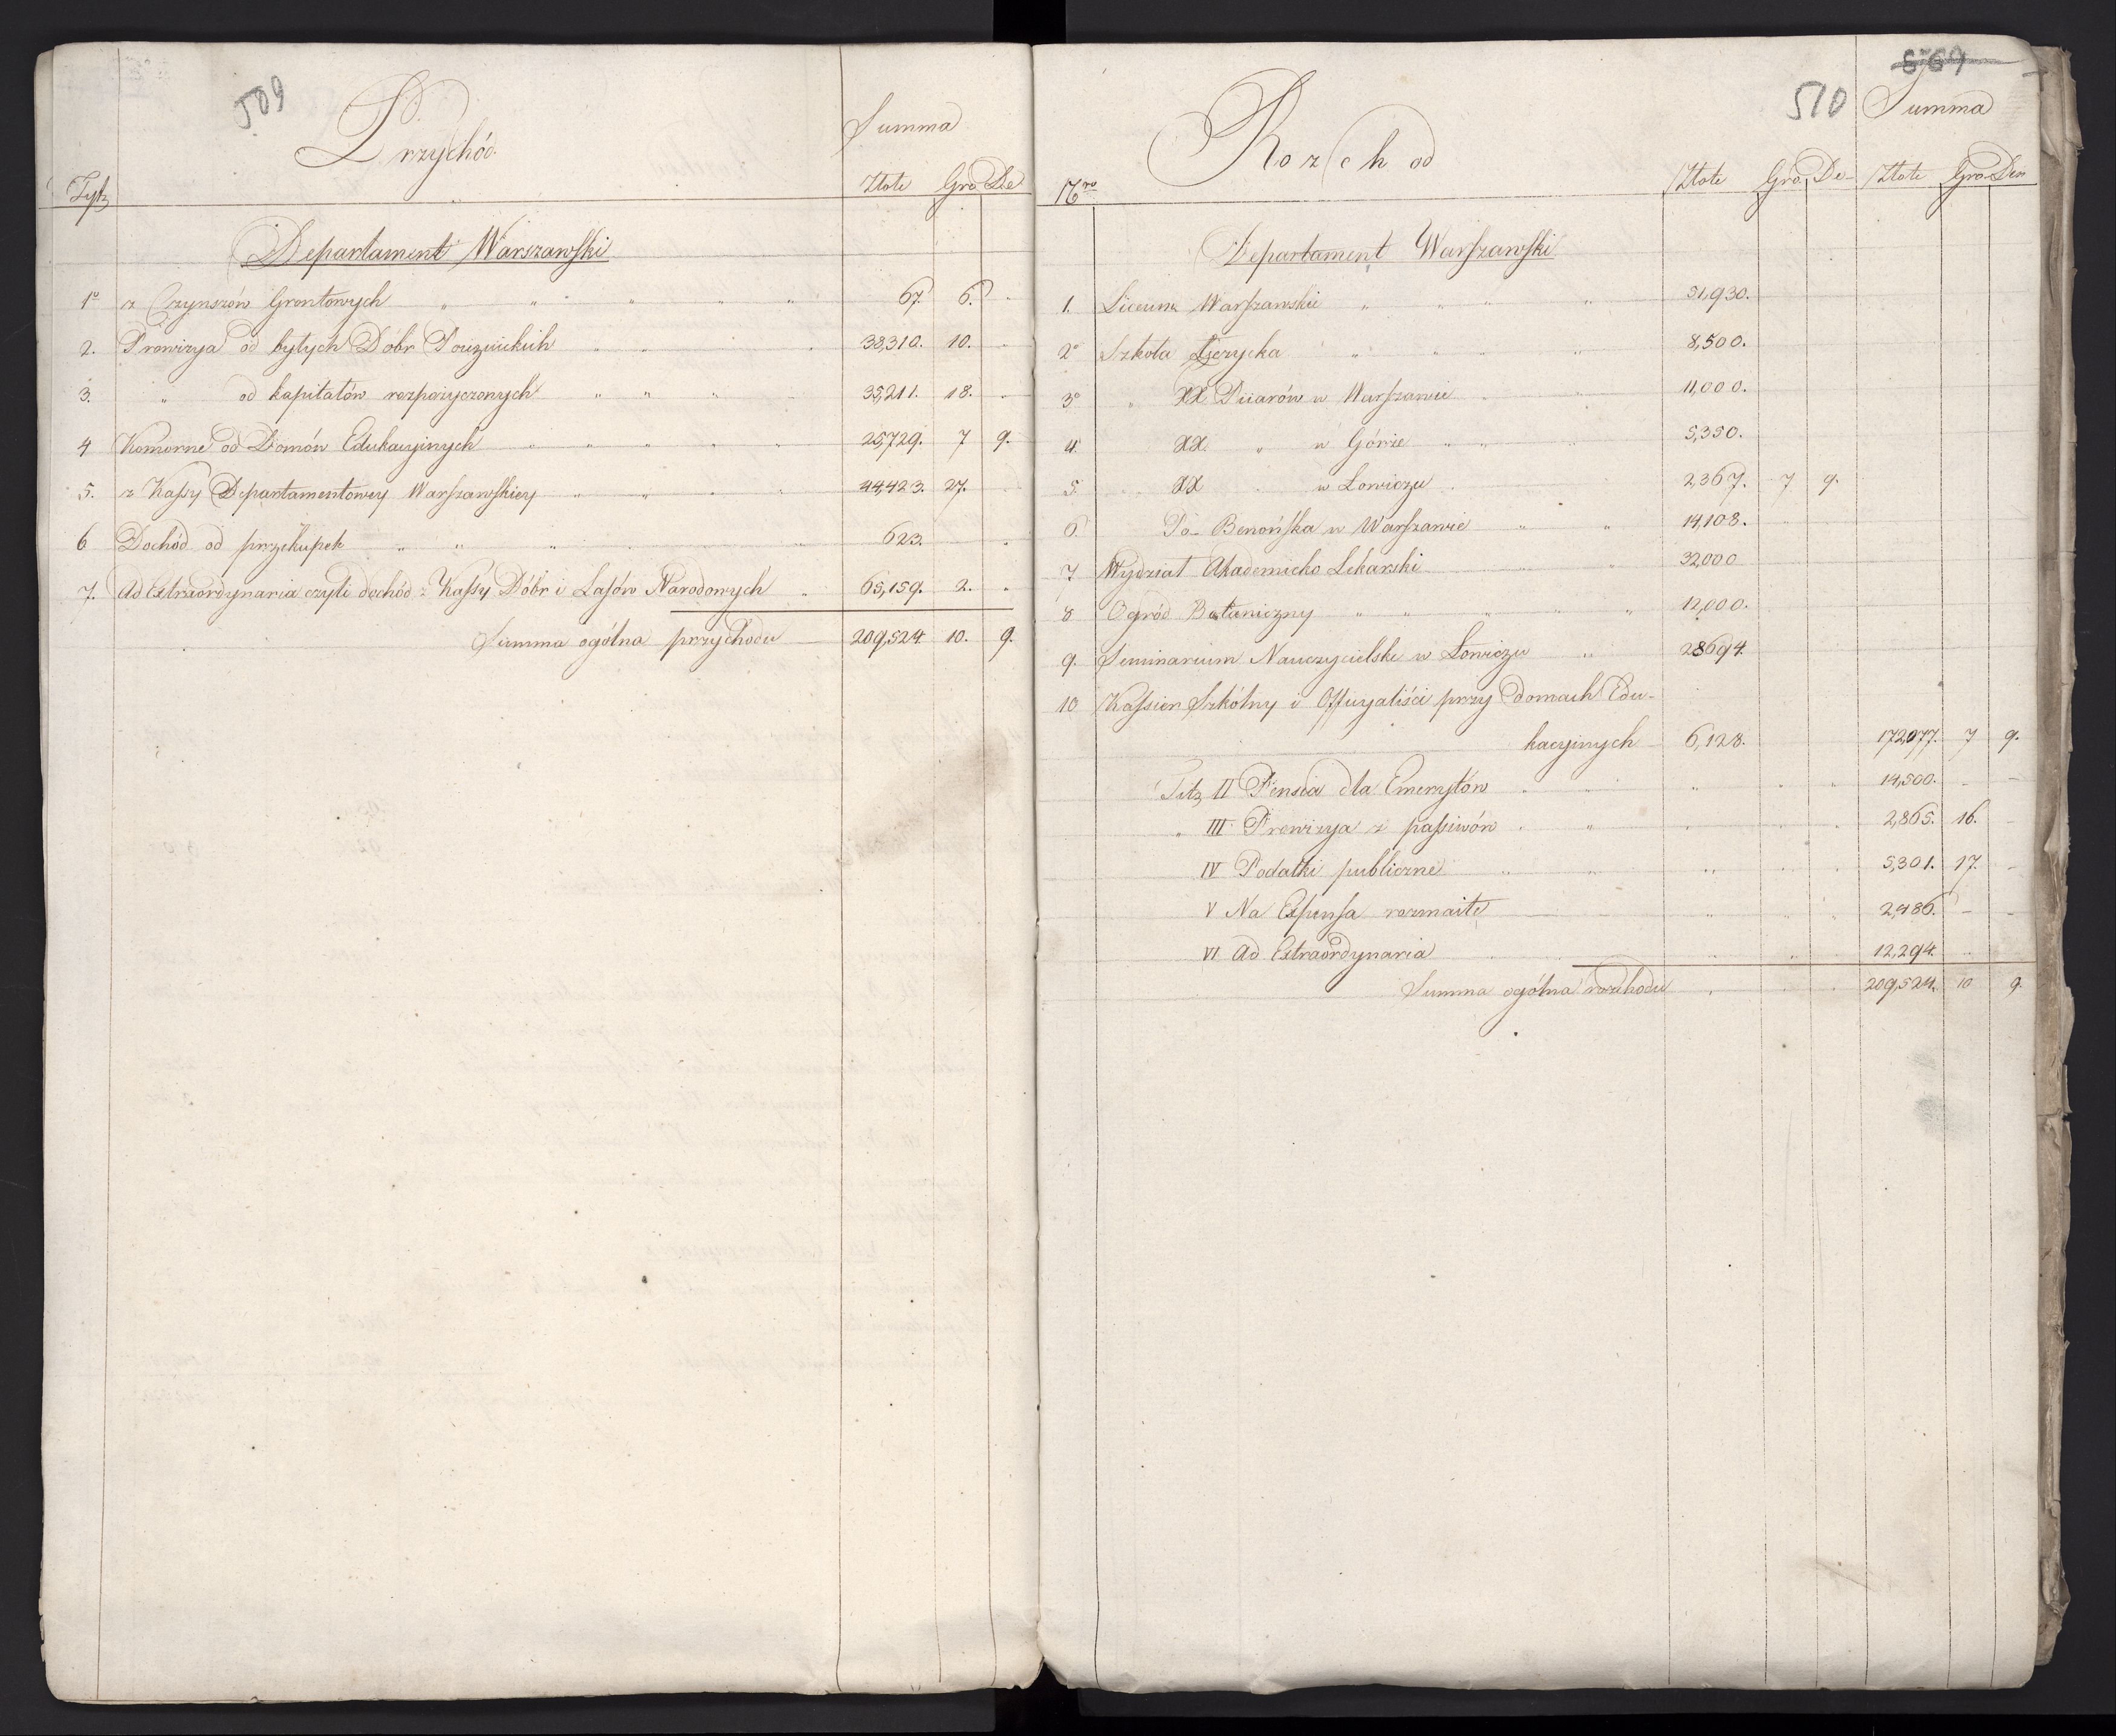 509
Przychód.
Summa
Tytz
Złote Gro De
Departament Warszawski
1º z Czynszów Gruntowych " " " " " 67. 6. "
2. Prowizya od byłych Dóbr Pojezuickich " " " 38,310. 10. "
3. " od kapitałów rozpożyczonych " " " 35,211. 18. "
4 Komorne od Domów Edukacyinych " " " " " 25,729. 7 9.
5. z Kassy Departamentowey Warszawskiey " " " " 44,423. 27.
6 Dochód od przekupek " " " " 623. "
7. Ad Extraordynaria czyli dochód z Kassy Dóbr i Lasów Narodowych " 65,159. 2. "
Summa ogólna przychodu — 209,524. 10. 9.
569
510
Rozchod
Summa
Nro Złote Gro De- Złote Gro Den
Departament Warszawski
1. Liceum Warszawskie " " " " 51,930.
2º Szkoła " " " " 8,500.
3º " XX. Piiarów w Warszawie " " 11,000.
4. XX. " w Górze " " " 5,350.
5. XX " w Łowiczu 2,367. 7 9.
6. Po-Benońska w Warszawie " " 14,108.
7 Wydział Akademicko Lekarski " " 32,000
8 Ogród Botaniczny " " " " " 12,000.
9. Seminarium Nauczycielskie w Łowiczu " 28694.
10 Kassier Szkólny i Officyaliści przy domach Edu-
kacyinych — 6,128. 172,077. 7 9.
Titz II Pensia dla Emerytów " " " " " 14,500. - -
" III Prowizya z passiwów " " " " " 2,865. 16. -
IV Podatki publiczne " " " " " 5,301. 17. -
V Na Expensa rozmaite " " " 2,486. - -
VI Ad Extraordynaria " " " " 12,294. "
Summa ogólna rozchodu " " " 209,524. 10 9.